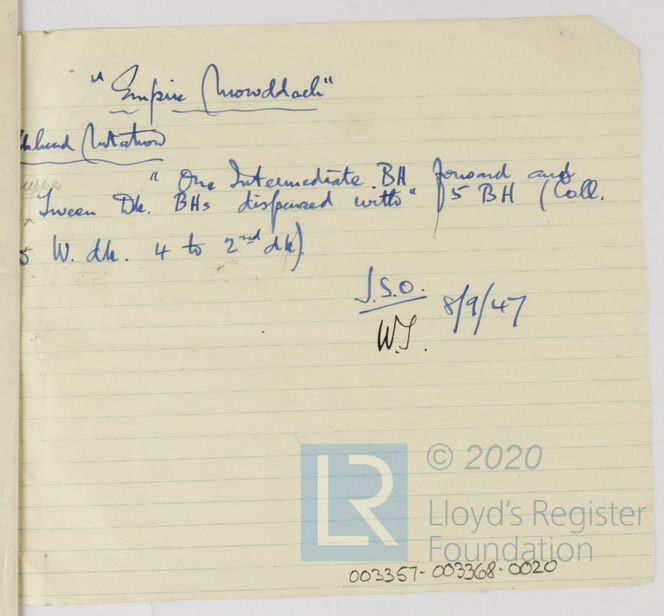 "Empire Mowddach"
lkhead Notation
" One Intermediate BH forward and
Tween Dk. BHs dispensed with" 5 BH (Coll.
5 W. dk. 4 to 2nd dk)
J.S.O. 8/9/47
W.J.
LR
© 2020
Lloyd's Register
Foundation
003357-003368-0020